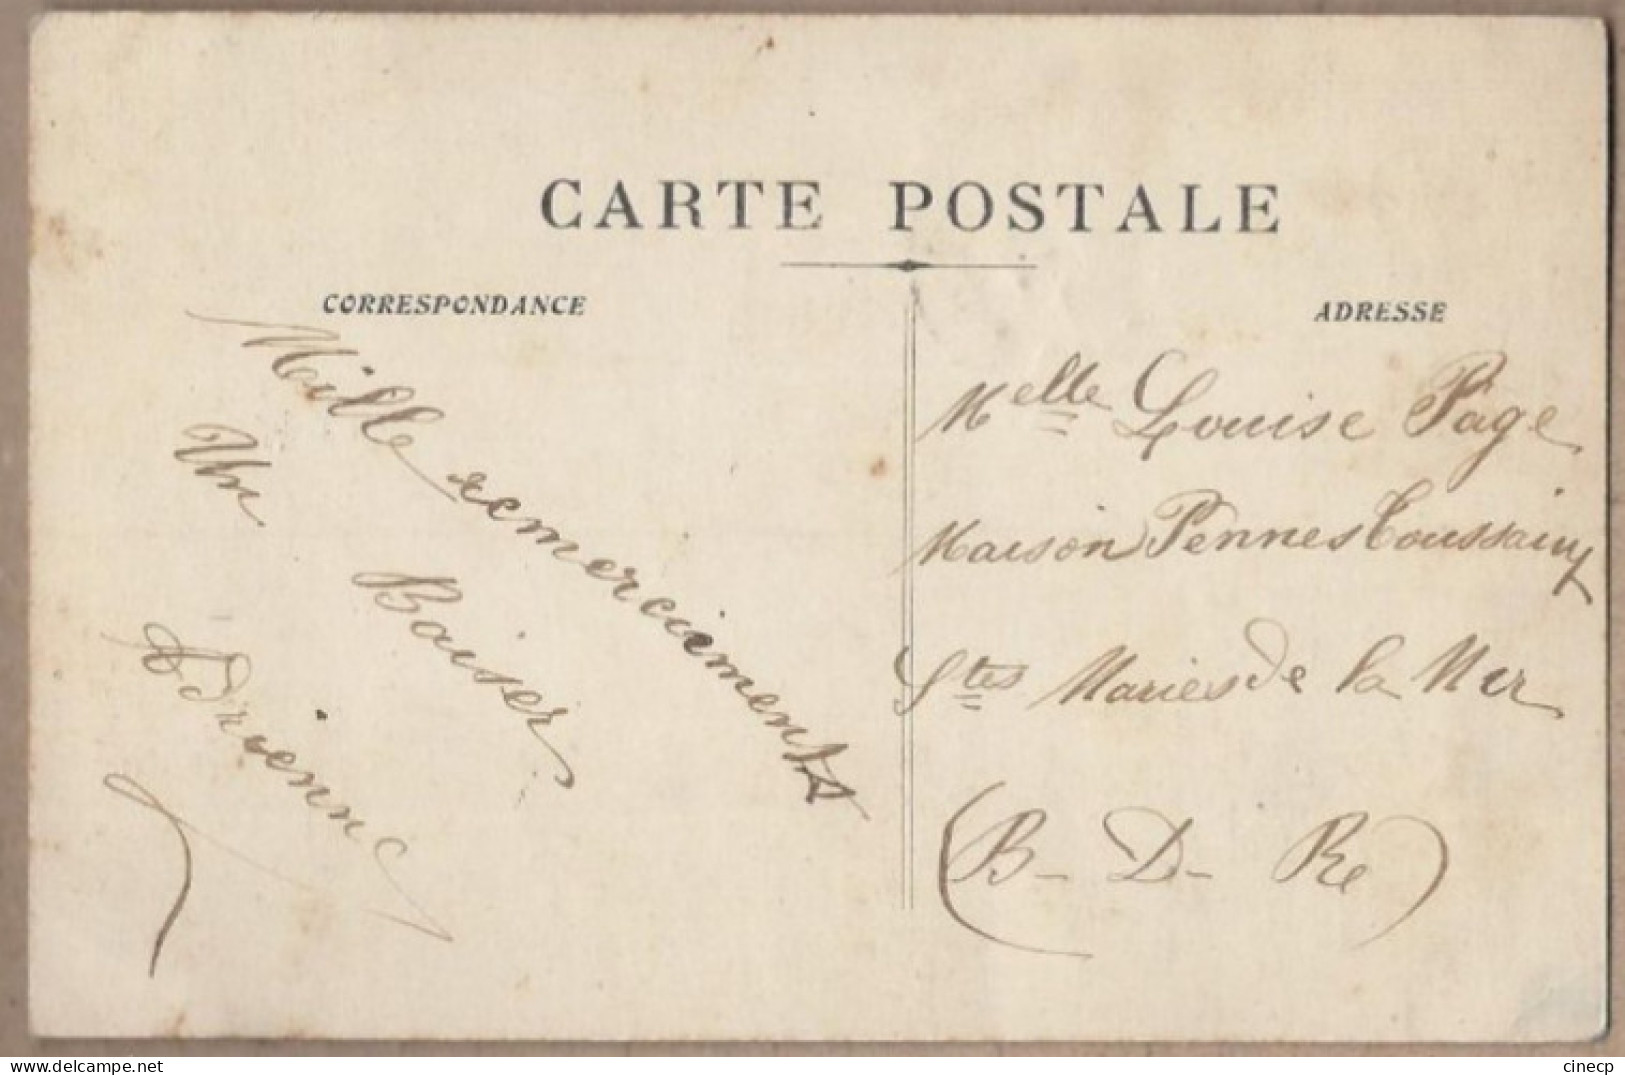 CARTE POSTALE
CORRESPONDANCE
ADRESSE
Mille remerciements
Un Baiser
Adrienne
Melle Louise Page
Maison Pennes Toussaint
Stes Maries de la Mer
(B-D-Re)
cinecp